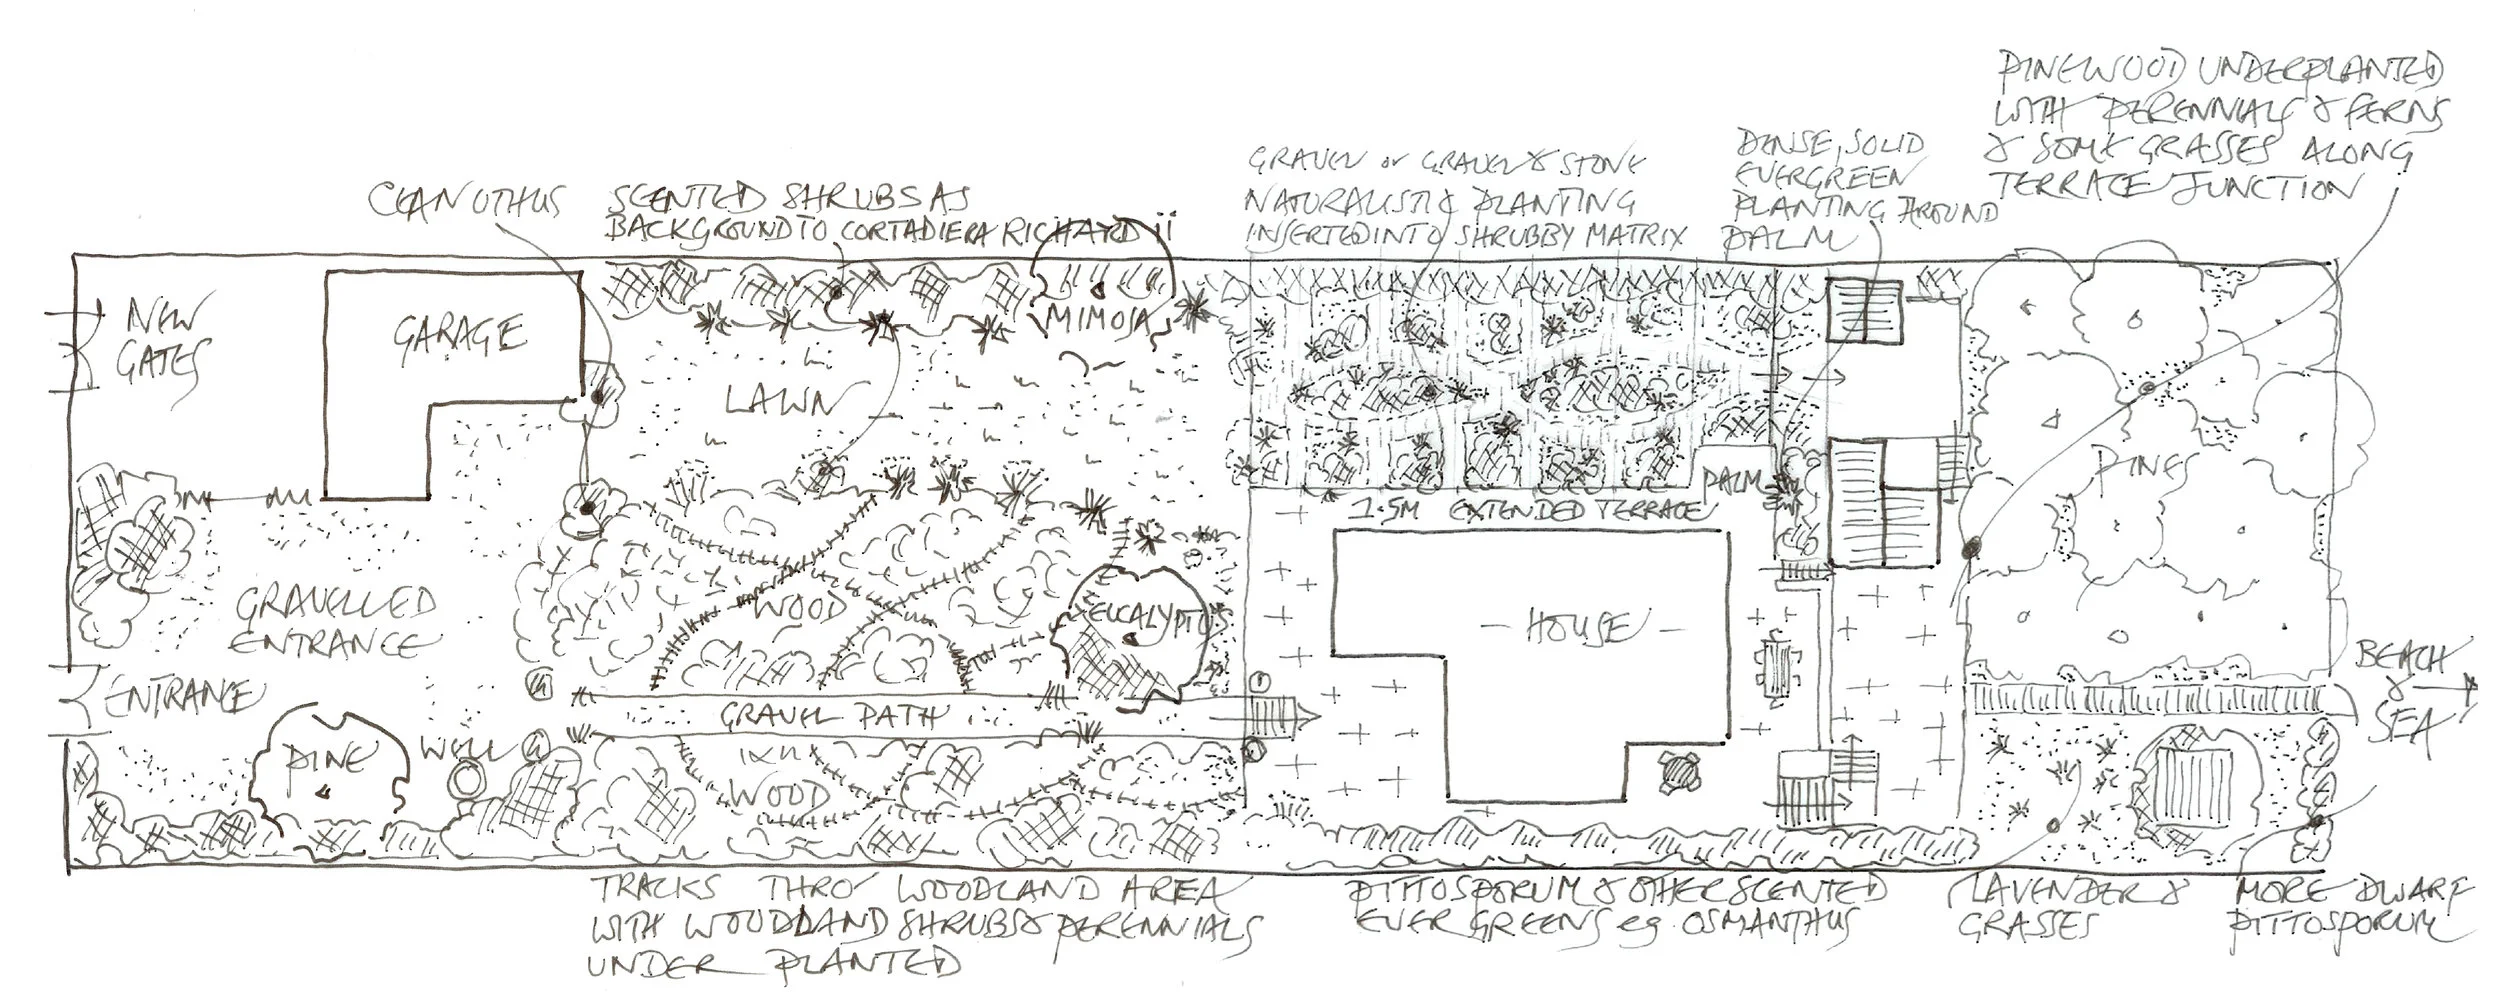 PINEWOOD UNDERPLANTED
WITH PERENNIALS & FERNS
& SOME GRASSES ALONG
TERRACE JUNCTION
DENSE, SOLID
EVERGREEN
PLANTING AROUND
PALM
GRAVEL or GRAVEL & STONE
NATURALISTIC PLANTING
INSERTED INTO SHRUBBY MATRIX
CEANOTHUS
SCENTED SHRUBS AS
BACKGROUND TO CORTADIERA RICHARD ii
NEW
GATES
GARAGE
MIMOSA
LAWN
PALM
PINES
1.5M EXTENDED TERRACE
GRAVELLED
ENTRANCE
WOOD
EUCALYPTUS
- HOUSE -
ENTRANCE
BEACH
&
SEA
GRAVEL PATH
PINE
WELL
WOOD
TRACKS THRO' WOODLAND AREA
WITH WOODLAND SHRUBS & PERENNIALS
UNDER PLANTED
PITTOSPORUM & OTHER SCENTED
EVER GREENS eg. OSMANTHUS
LAVENDER &
GRASSES
MORE DWARF
PITTOSPORUM